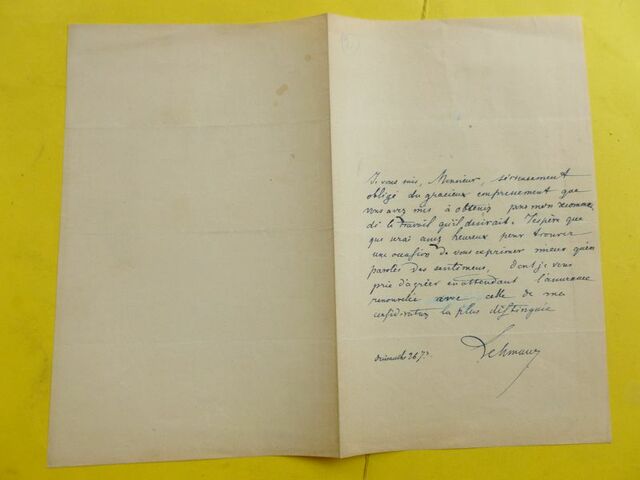 Je vous suis, Monsieur, sérieusement
obligé du gracieux empressement que
vous avez mis à obtenir pour mon recomman
dé le travail qu'il désirait. J'espère que
que serai assez heureux pour trouver
une occasion de vous exprimer mieux qu'en
paroles des sentiments, dont je vous
prie d'agréer en attendant l'assurance
renouvelée avec celle de ma
considération la plus distinguée
Dimanche 26 7re
Lehmann